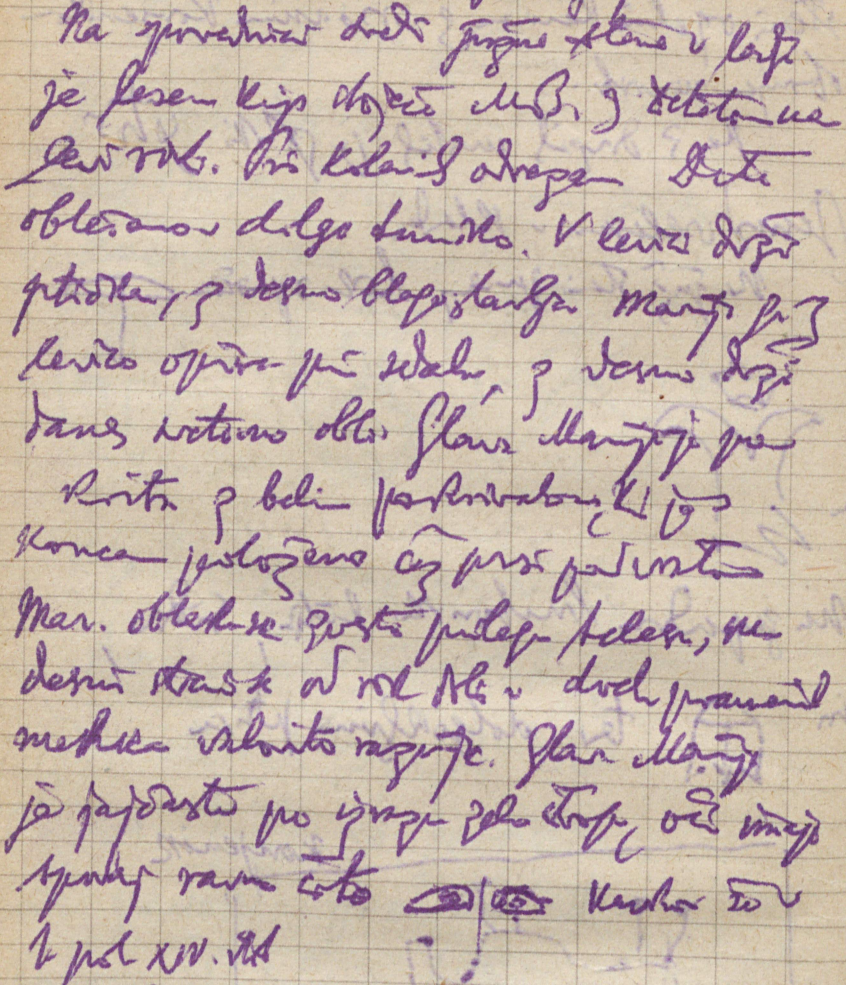 Na spovednici sredi južne stene v ladji
je lesen kip doječe M. B. z detetom na
levi roki. Pri kolenih odrezan. Dete
oblečeno v dolgo tuniko. V levici drži
ptička, z desno blagoslavlja. Marija ga z
levico opira pri sedalu, z desno drži
danes
Glava Marijeje po
krita z belim pokrivalom, ki je s
koncem položeno čez prsi
Mar. obleka se gosto prilega telesu, na
desni strani se od rok v dveh pramenih
mehka valovito razvija. Glava Marije
je jajčasta po izrazu zelo stroga, oči imajo
spodaj ravno črto
1 pol XIV. st.